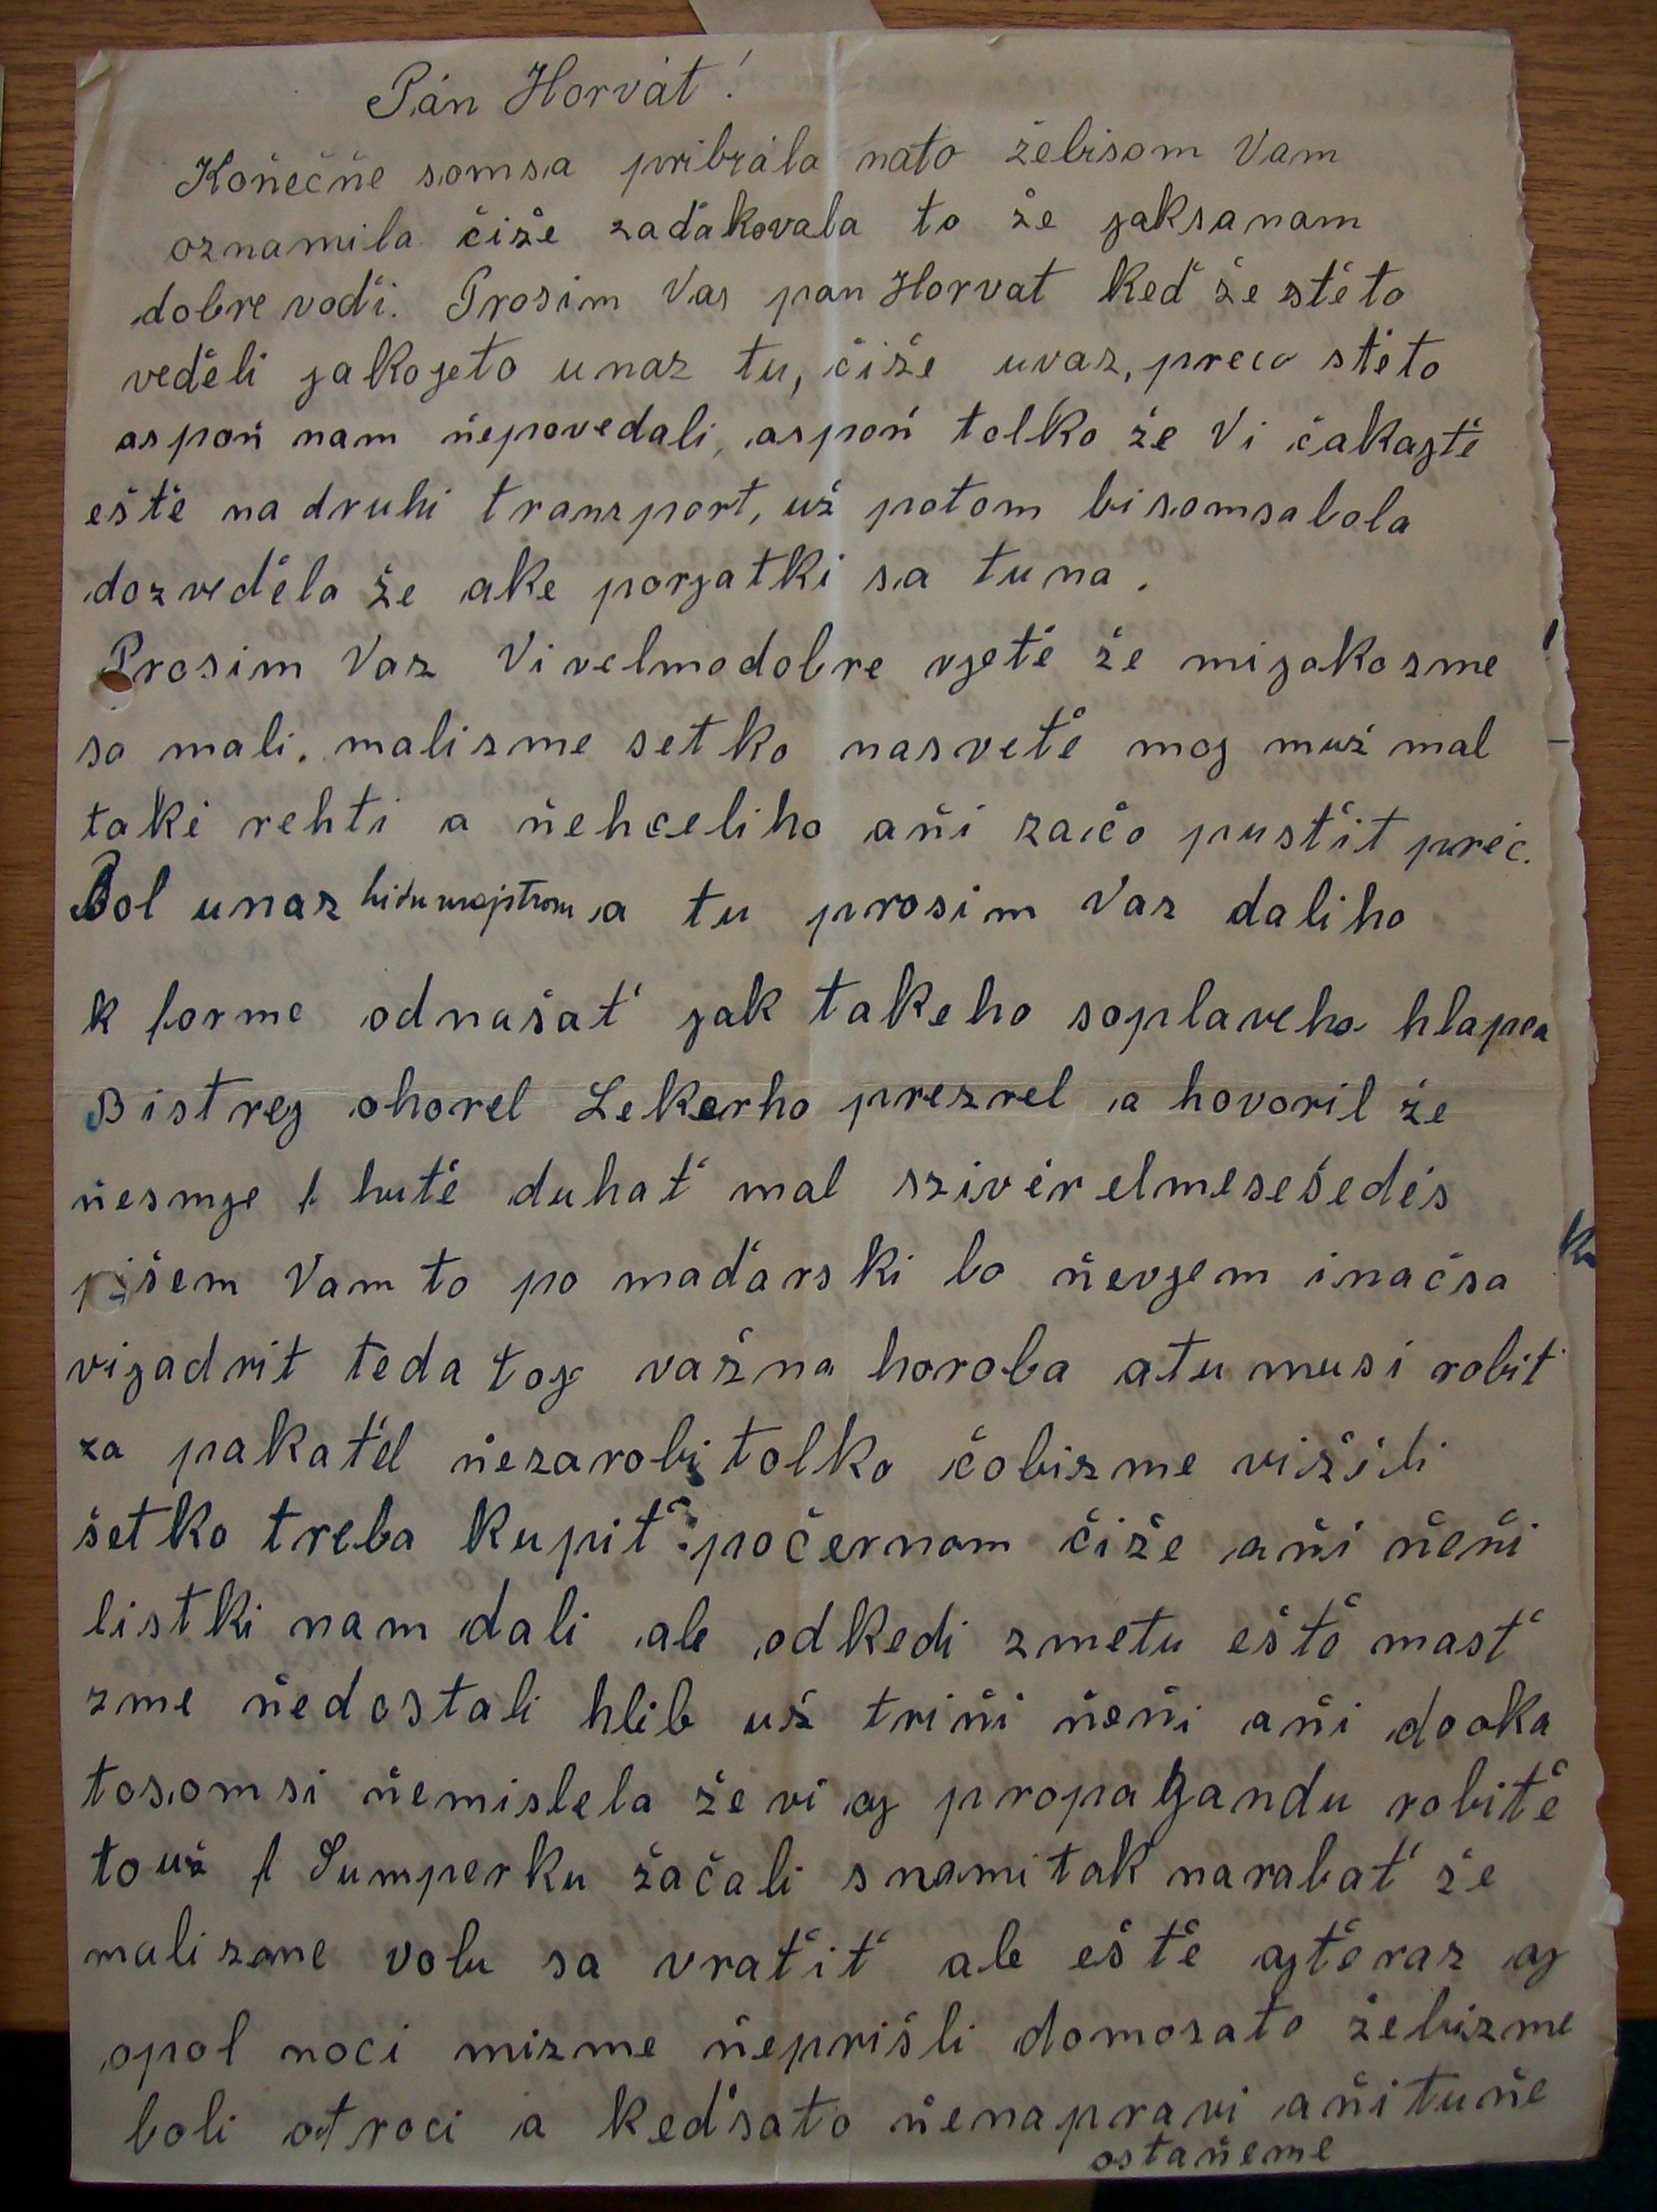 Pán Horvát!
Koňečňe somsa pribrála nato žebisom Vam
oznamila čiže zaďakovala to že jaksanam
dobre voďi. Prosim Vas pan Horvat keď že stěto
veděli jakojeto unaz tu, čiže uvaz, preco stěto
aspoň nam ňepovedali, aspoň tolko že Vi čakajtě
eště na druhi transport, už potom bisomsabola
dozveděla že ake porjatki sa tuna.
Prosim Vaz Vivelmodobre vjetě že mijakozme
sa mali. malizme setko nasvetě moj muž mal
taki rehti a ňehceliho aňi začo pusťit preč.
Bol unaz a tu prosim Vaz daliho
k forme odnašať jak takeho soplaveho hlapca
Bistrej ohorel Lekarho prezrel a hovoril že
ňesmje f hutě duhať mal szivér elmesešedés
pišem Vam to po maďarski bo ňevjem inačsa
vijadrit teda toje važna horoba atu musi robiť
za pakatěl ňezarobi tolko čobizme vižili
šetko treba kupiť počernom čiže aňi ňeňi
listki nam dali ale odkedi zmetu eště masť
zme ňedostali hlib už triňi ňeňi aňi dooka
tosomsi ňemislela že vi aj propagandu robitě
touž f Sumperku žačali snami tak narabať že
malizme volu sa vraťiť ale eště ajteraz aj
opol noci mizme ňeprišli domozato žebizme
boli otroci a keďsato ňenapravi aňituňe
ostaňeme